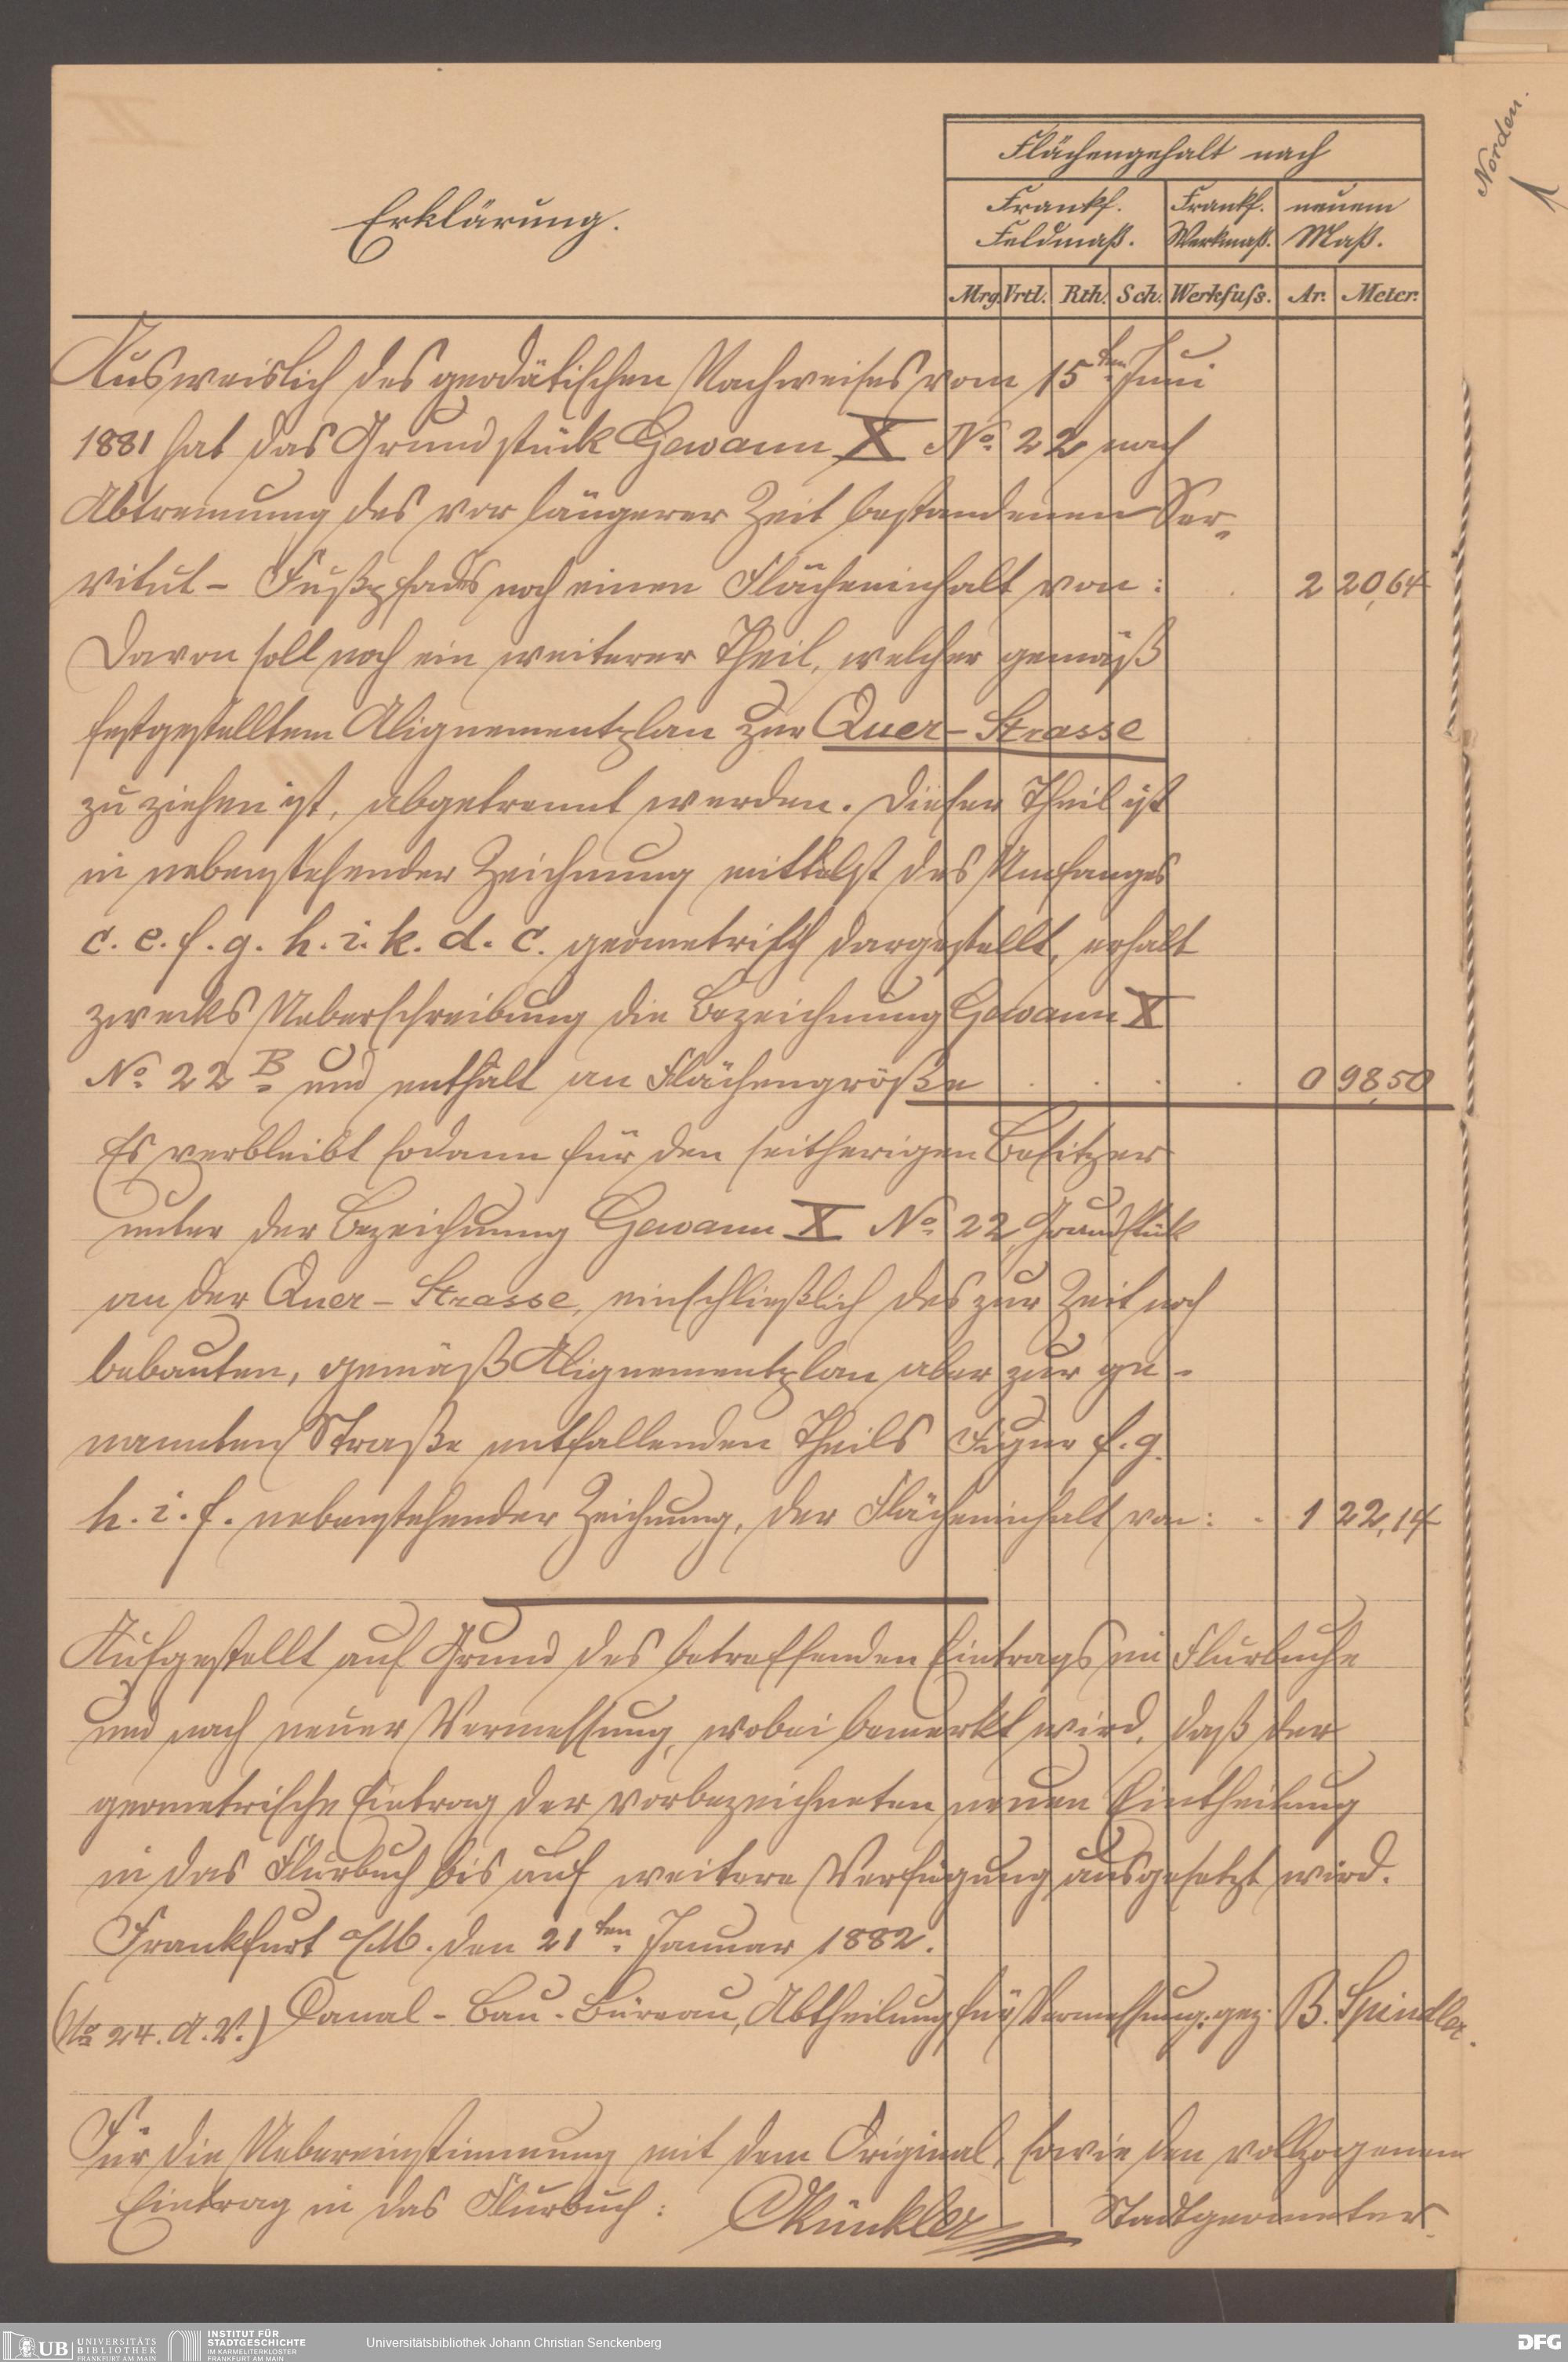 Flächengehalt nach
Erklärung.
Frankf. Feldmaß.
Frankf. Werkmaß.
neuem Maß.
Mrg. Vrtl. Rth. Sch. Werkfuss. Ar. Meter.
Norden.
Ausweislich des geodätischen Nachweises vom 15ten Juni
1881 hat das Grundstück Gewann X No. 22 nach
Abtrennung des vor längerer Zeit bestandenen Ser-
vitut-Fußpfades noch einen Flächeninhalt von: 2 20,64
Davon soll noch ein weiterer Theil, welcher gemäß
festgestelltem Alignementplan zur Quer-Strasse
zu ziehen ist, abgetrennt werden. Dieser Theil ist
in nebenstehender Zeichnung mittelst des Umfanges
c. e. f. g. h. i. k. d. c. geometrisch dargestellt, erhält
zwecks Ueberschreibung die Bezeichnung Gewann X
No. 22 B und enthält an Flächengröße . . . . 0 98,50
Es verbleibt sodann für den seitherigen Besitzer
unter der Bezeichnung Gewann X No. 22 Grundstück
an der Quer-Strasse, einschließlich des zur Zeit noch
bebauten, gemäß Alignementplan aber zur ge-
nannten Straße entfallenden Theils Figur f. g.
h. i. f. nebenstehender Zeichnung, der Flächeninhalt von: . 1 22,14
Aufgestellt auf Grund des betreffenden Eintrags im Flurbuche
und nach neuer Vermessung, wobei bemerkt wird, daß der
geometrische Eintrag der vorbezeichneten neuen Eintheilung
in das Flurbuch bis auf weitere Verfügung ausgesetzt wird.
Frankfurt a/M. den 21ten Januar 1882.
(No 24. A. V.) Canal-Bau-Büreau, Abtheilung für Vermessung: gez. B. Spindler.
Für die Uebereinstimmung mit dem Original, sowie den vollzogenen
Eintrag in das Flurbuch: Künkler Stadtgeometer.
UB UNIVERSITÄTS BIBLIOTHEK FRANKFURT AM MAIN
INSTITUT FÜR STADTGESCHICHTE IM KARMELITERKLOSTER FRANKFURT AM MAIN
Universitätsbibliothek Johann Christian Senckenberg
DFG